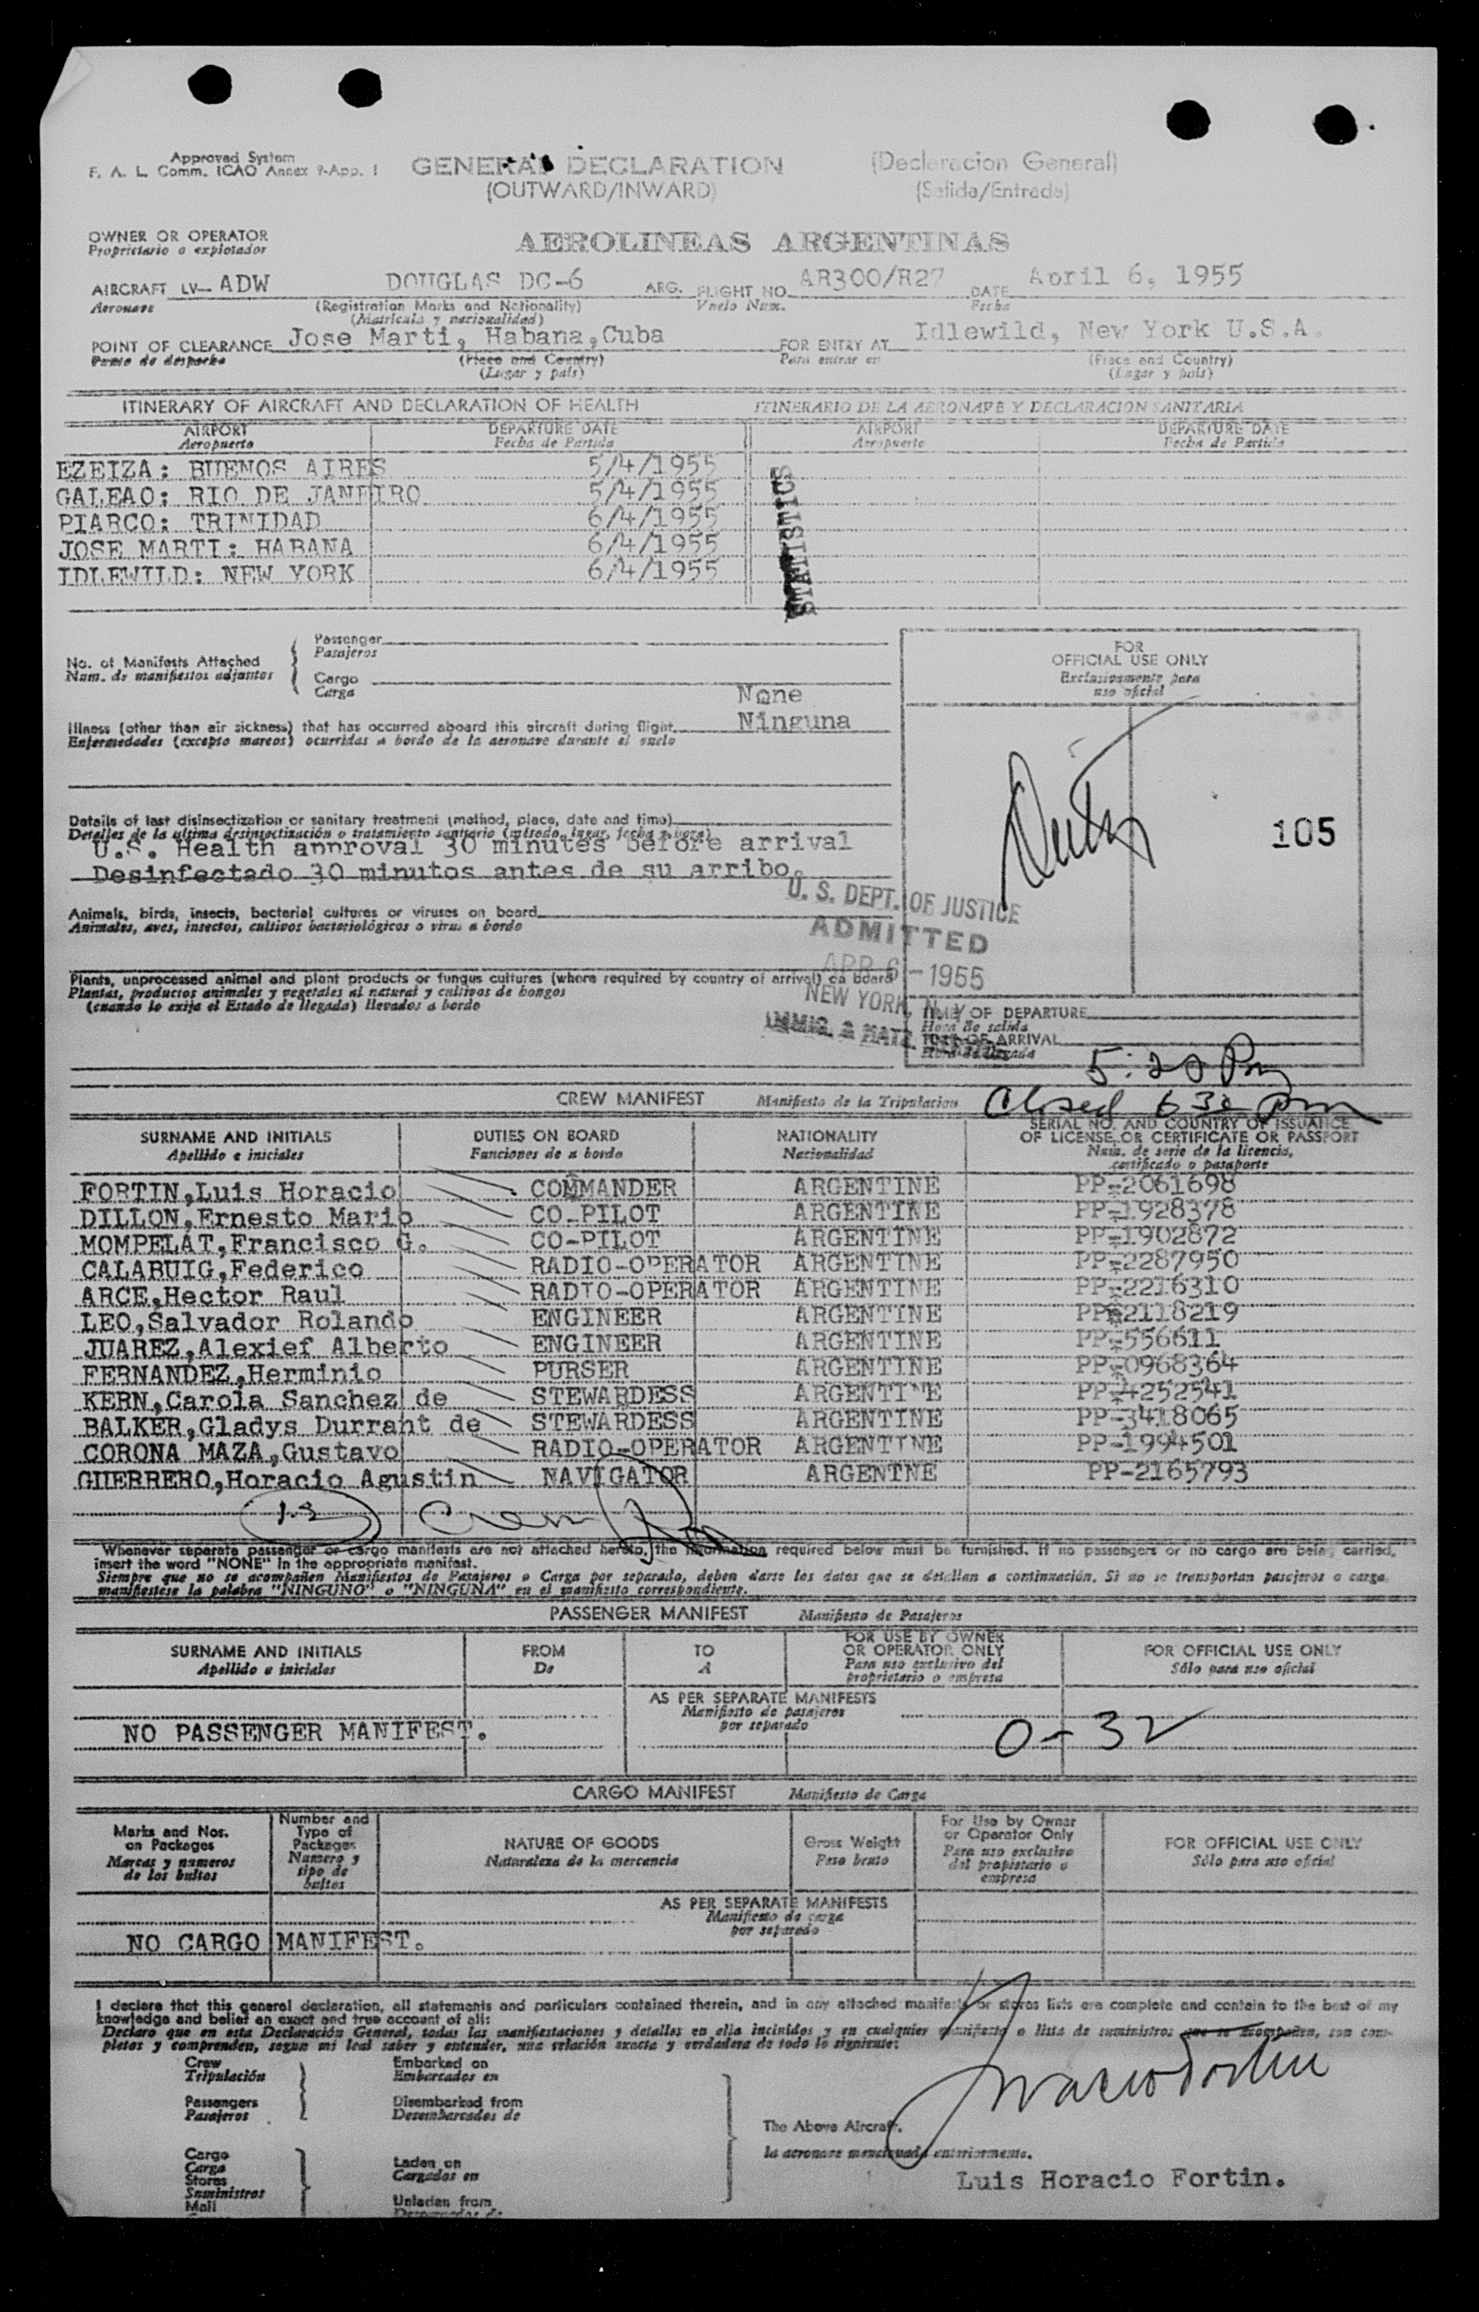 Approved System
F. A. L. Comm. ICAO Annex 9-App. 1
GENERAL DECLARATION
(Declaracion General)
(OUTWARD/INWARD)
(Salida/Entrada)
OWNER OR OPERATOR
Proprietario o explotador
AEROLINEAS ARGENTINAS
AIRCRAFT LV- ADW DOUGLAS DC-6 ARG. FLIGHT NO. AR300/R27 DATE April 6, 1955
Aeronave (Registration Marks and Nationality) Vuelo Num. Fecha
(Matricula y nacionalidad)
POINT OF CLEARANCE Jose Marti, Habana,Cuba FOR ENTRY AT Idlewild, New York U.S.A.
Punto de despacho (Place and Country) Para entrar en (Place and Country)
(Lugar y pais) (Lugar y pais)
ITINERARY OF AIRCRAFT AND DECLARATION OF HEALTH ITINERARIO DE LA AERONAVE Y DECLARACION SANITARIA
AIRPORT DEPARTURE DATE AIRPORT DEPARTURE DATE
Aeropuerto Fecha de Partida Aeropuerto Fecha de Partida
EZEIZA: BUENOS AIRES 5/4/1955
GALEAO: RIO DE JANEIRO 5/4/1955
PIARCO: TRINIDAD 6/4/1955
JOSE MARTI: HABANA 6/4/1955
IDLEWILD: NEW YORK 6/4/1955
STATISTICS
Passenger
Pasajeros
No. of Manifests Attached
Num. de manifiestos adjuntos
Cargo
Carga
FOR
OFFICIAL USE ONLY
Exclusivamente para
uso oficial
None
Illness (other than air sickness) that has occurred aboard this aircraft during flight. Ninguna
Enfermedades (excepto mareos) ocurridas a bordo de la aeronave durante el vuelo
105
Details of last disinsectization or sanitary treatment (method, place, date and time)
Detalles de la ultima desinsectización o tratamiento sanitario (método, lugar, fecha y hora)
U.S. Health approval 30 minutes before arrival
Desinfectado 30 minutos antes de su arribo.
U. S. DEPT. OF JUSTICE
ADMITTED
APR 6 - 1955
NEW YORK, N. Y.
IMMIG. & NATZ.
Animals, birds, insects, bacterial cultures or viruses on board
Animales, aves, insectos, cultivos bacteriológicos o virus a bordo
Plants, unprocessed animal and plant products or fungus cultures (where required by country of arrival) on board
Plantas, productos animales y vegetales al natural y cultivos de hongos
(cuando lo exija el Estado de llegada) llevados a bordo
TIME OF DEPARTURE
Hora de salida
TIME OF ARRIVAL
Hora de llegada
5:20 Pm
Closed 630 pm
CREW MANIFEST Manifiesto de la Tripulacion
SURNAME AND INITIALS DUTIES ON BOARD NATIONALITY SERIAL NO. AND COUNTRY OF ISSUANCE
OF LICENSE, OR CERTIFICATE OR PASSPORT
Apellido e iniciales Funciones de a bordo Nacionalidad Num. de serie de la licencia,
certificado o pasaporte
FORTIN,Luis Horacio COMMANDER ARGENTINE PP-2061698
DILLON,Ernesto Mario CO-PILOT ARGENTINE PP-1928378
MOMPELAT,Francisco G. CO-PILOT ARGENTINE PP-1902872
CALABUIG,Federico RADIO-OPERATOR ARGENTINE PP-2287950
ARCE,Hector Raul RADIO-OPERATOR ARGENTINE PP-2216310
LEO,Salvador Rolando ENGINEER ARGENTINE PP-2118219
JUAREZ,Alexief Alberto ENGINEER ARGENTINE PP-556611
FERNANDEZ,Herminio PURSER ARGENTINE PP-0968364
KERN,Carola Sanchez de STEWARDESS ARGENTINE PP-4252541
BALKER,Gladys Durrant de STEWARDESS ARGENTINE PP-3418065
CORONA MAZA,Gustavo RADIO-OPERATOR ARGENTINE PP-1994501
GUERRERO,Horacio Agustin NAVIGATOR ARGENTNE PP-2165793
Crew
Whenever separate passenger or cargo manifests are not attached hereto, the information required below must be furnished. If no passengers or no cargo are being carried,
insert the word "NONE" in the appropriate manifest.
Siempre que no se acompañen Manifiestos de Pasajeros o Carga por separado, deben darse los datos que se detallan a continuación. Si no se transportan pasajeros o carga
manifiestese la palabra "NINGUNO" o "NINGUNA" en el manifiesto correspondiente.
PASSENGER MANIFEST Manifiesto de Pasajeros
SURNAME AND INITIALS FROM TO FOR USE BY OWNER
OR OPERATOR ONLY FOR OFFICIAL USE ONLY
Apellido e iniciales De A Para uso exclusivo del
proprietario o empresa Sólo para uso oficial
AS PER SEPARATE MANIFESTS
Manifiesto de pasajeros
por separado
NO PASSENGER MANIFEST.
0-32
CARGO MANIFEST Manifiesto de Carga
Marks and Nos.
on Packages
Marcas y numeros
de los bultos
Number and
Type of
Packages
Numero y
tipo de
bultos
NATURE OF GOODS
Naturaleza de la mercancia
Gross Weight
Peso bruto
For Use by Owner
or Operator Only
Para uso exclusivo
del propietario o
empresa
FOR OFFICIAL USE ONLY
Sólo para uso oficial
AS PER SEPARATE MANIFESTS
Manifiesto de carga
por separado
NO CARGO MANIFEST.
I declare that this general declaration, all statements and particulars contained therein, and in any attached manifests or stores lists are complete and contain to the best of my
knowledge and belief an exact and true account of all:
Declaro que en esta Declaración General, todas las manifestaciones y detalles en ella incluidos y en cualquier manifiesto o lista de suministros que se acompañen, son com-
pletos y comprenden, segun mi leal saber y entender, una relación exacta y verdadera de todo lo siguiente:
Crew Embarked on
Tripulación Embarcados en
Passengers Disembarked from
Pasajeros Desembarcados de
The Above Aircraft.
la aeronave mencionada anteriormente.
Cargo
Carga
Stores
Suministros
Mail
Laden on
Cargados en
Unladen from
Luis Horacio Fortin.